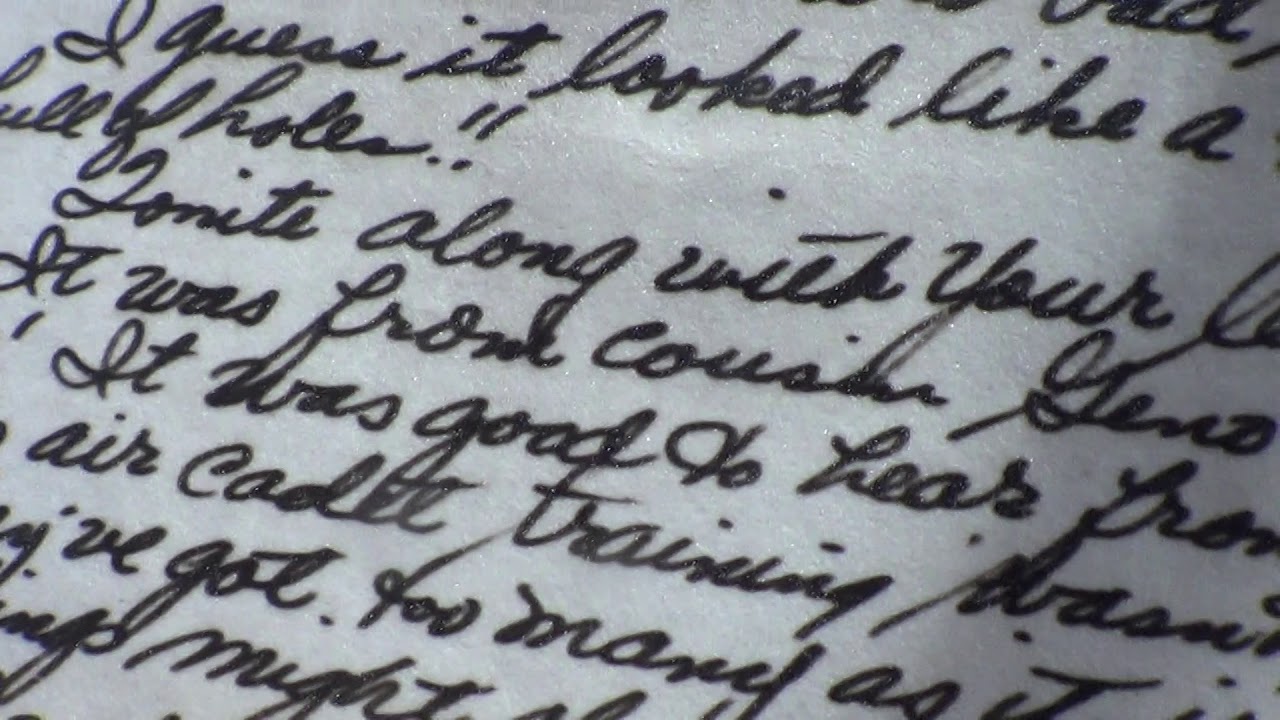 bad,
I guess it looked like a
full of holes.."
Tonite along with your
It was from cousin Geno
It was good to hear from
air cadet training wasn't
've got too many as it
might